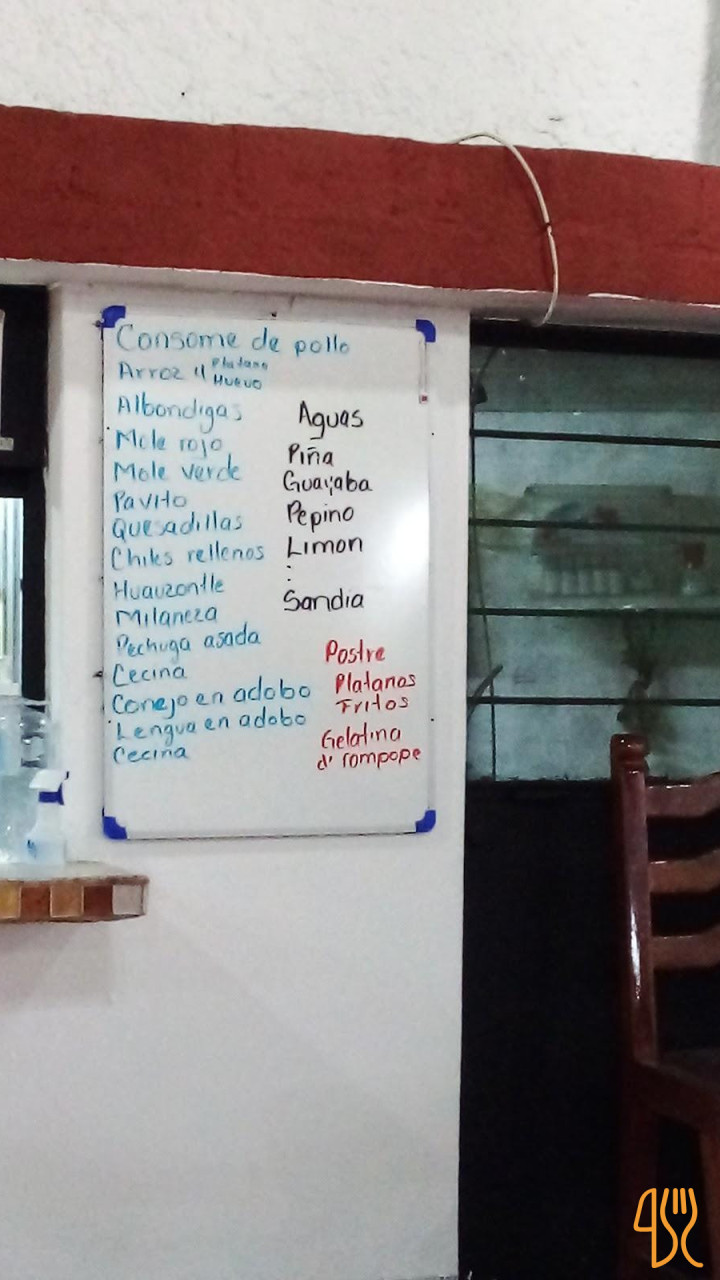 Consome de pollo
Arroz y Platano
Huevo
Albondigas
Mole rojo
Mole verde
Pavito
Quesadillas
Chiles rellenos
Huauzontle
Milaneza
Pechuga asada
Cecina
Conejo en adobo
Lengua en adobo
Cecina
Aguas
Piña
Guayaba
Pepino
Limon
:
Sandia
Postre
Platanos
Fritos
Gelatina
d' rompope